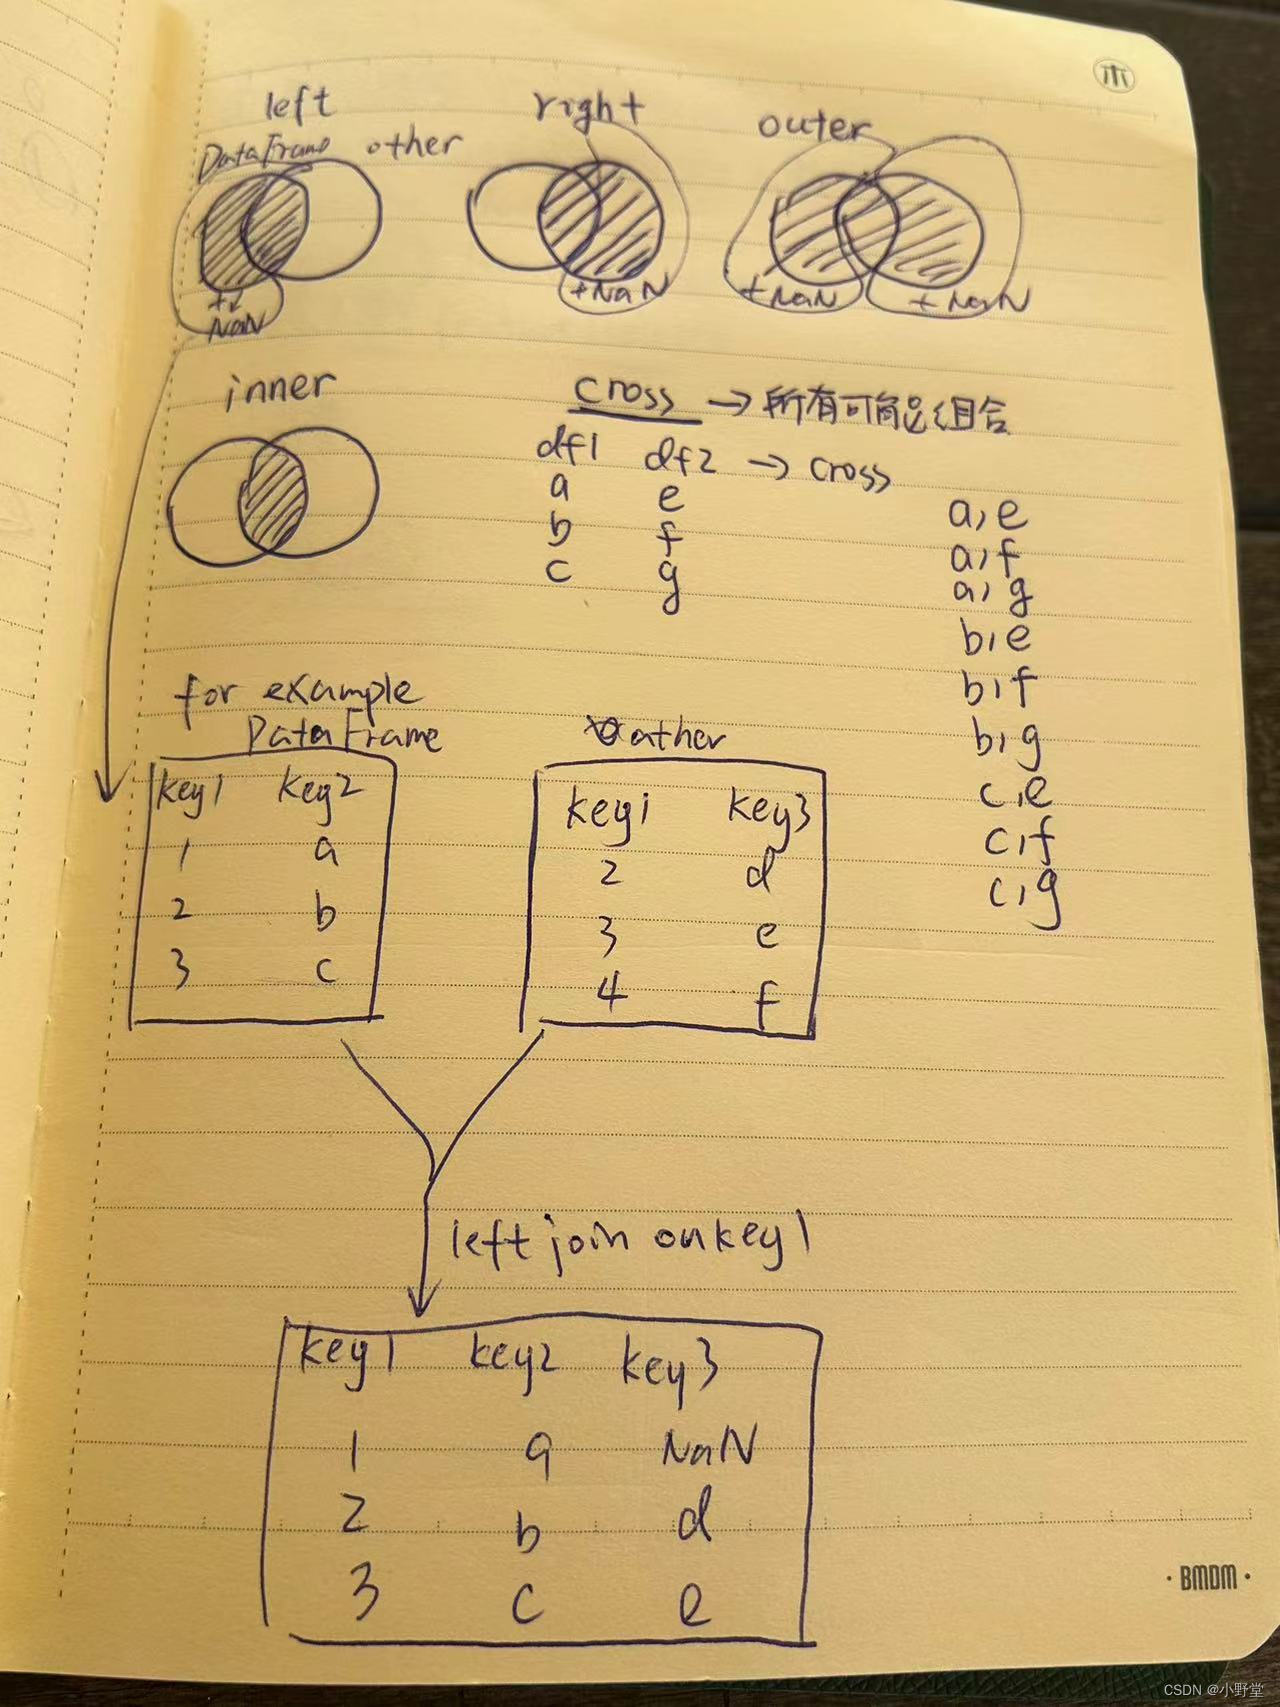 left right outer
DataFrame other
+
NaN +NaN +NaN +NaN
inner
cross → 所有可能组合
df1 df2 → cross
a e
b f
c g
a,e
a,f
a,g
b,e
b,f
b,g
c,e
c,f
c,g
for example
DataFrame
key1 key2
1 a
2 b
3 c
oather
key1 key3
2 d
3 e
4 f
left join on key1
key1 key2 key3
1 a NaN
2 b d
3 c e
· BMDM ·
CSDN @小野堂